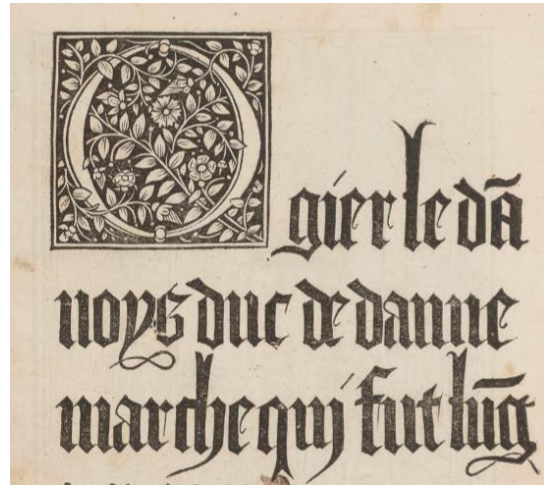 Ogier le dā
noys duc de danne
marche qui fut lūg